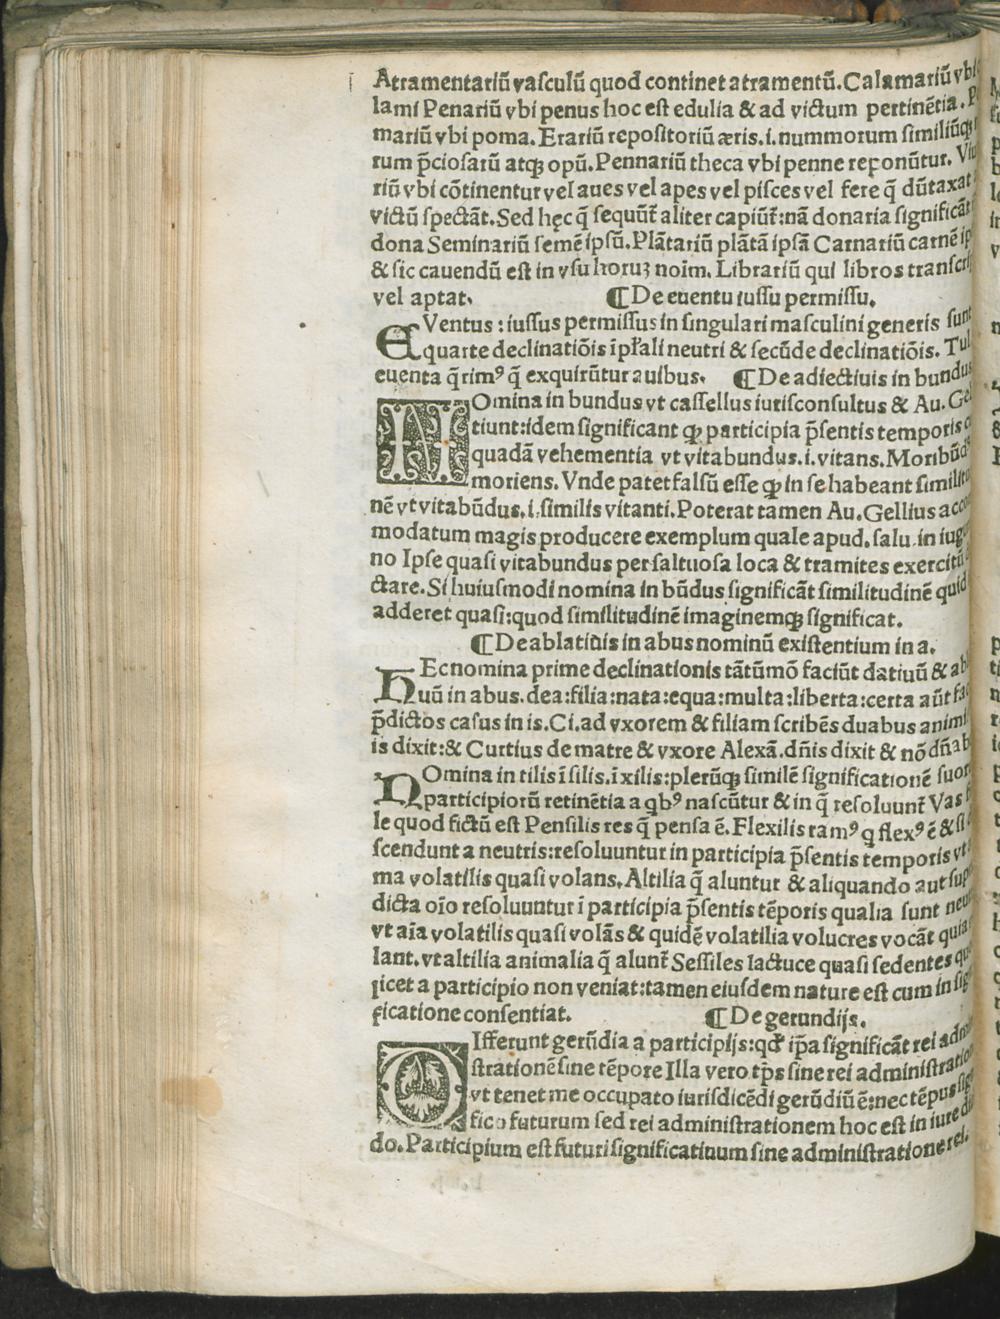 Atramentariũ vasculũ quod continet atramentũ. Calamariũ vbi
lami Penariũ vbi penus hoc est edulia & ad victum pertinẽtia.
mariũ vbi poma. Erariũ repositoriũ æris .i. nummorum similiũꝗ
rum p̃ciosarũ atqꝫ opũ. Pennariũ theca vbi penne reponũtur.
riũ vbi cõtinentur vel aues vel apes vel pisces vel fere q̃ dũtaxat
victũ spectãt. Sed hęc q̃ sequũt᷑ aliter capiũt᷑: nã donaria significãt
dona Seminariũ semẽ ipsũ. Plãtariũ plãtã ipsã Carnariũ carnẽ
& sic cauendũ est in vsu horuꝫ noim. Librariũ qui libros transcri
vel aptat. ¶ De euentu iussu permissu.
EVentus: iussus permissus in singulari masculini generis sunt
quarte declinatiõis ĩ pl̃ali neutri & secũde declinatiõis. Tul
euenta q̃rimꝰ q̃ exquirũtur auibus. ¶ De adiectiuis in bundus
NOmina in bundus vt cassellus iurisconsultus & Au. Gel
tiunt: idem significant qꝫ participia p̃sentis temporis
quadã vehementia vt vitabundus .i. vitans. Moribũdꝰ
moriens. Vnde patet falsũ esse qꝫ in se habeant similitu
nẽ vt vitabũdus .i. similis vitanti. Poterat tamen Au. Gellius acco
modatum magis producere exemplum quale apud. salu. in iugu
no Ipse quasi vitabundus per saltuosa loca & tramites exercitũ
ctare. Si huiusmodi nomina in bũdus significãt similitudinẽ quid
adderet quasi: quod similitudinẽ imaginemqꝫ significat.
¶ De ablatiuis in abus nominũ existentium in a.
HEc nomina prime declinationis tãtũmõ faciũt datiuũ & ab
uũ in abus. dea: filia: nata: equa: multa: liberta: certa aũt fac
p̃dictos casus in is. Ci. ad vxorem & filiam scribẽs duabus animi
is dixit: & Curtius de matre & vxore Alexã. dñis dixit & nõ dñab
NOmina in tilis ĩ silis. ĩ xilis: plerũqꝫ similẽ significationẽ suorũ
participiorũ retinẽtia a qbꝰ nascũtur & in q̃ resoluunt᷑ Vas
le quod fictũ est Pensilis res q̃ pensa ẽ. Flexilis ramꝰ q flexꝰ ẽ & si
scendunt a neutris: resoluuntur in participia p̃sentis temporis vt
ma volatilis quasi volans. Altilia q̃ aluntur & aliquando aut sup
dicta oĩo resoluuntur ĩ participia p̃sentis tẽporis qualia sunt neu
vt aĩa volatilis quasi volãs & quidẽ volatilia volucres vocãt quia
lant. vt altilia animalia q̃ alunt᷑ Sessiles lactuce quasi sedentes
licet a participio non veniat: tamen eiusdem nature est cum in sig
ficatione consentiat. ¶ De gerundijs.
DIfferunt gerũdia a participijs: qđ ip̃a significãt rei admin
strationẽ sine tẽpore Illa vero tp̃s sine rei administratione
vt tenet me occupato iurisdicẽdi gerũdiũ ẽ: nec tẽpus sig
fico futurum sed rei administrationem hoc est in iure di
do. Participium est futuri significatiuum sine administratione rei.